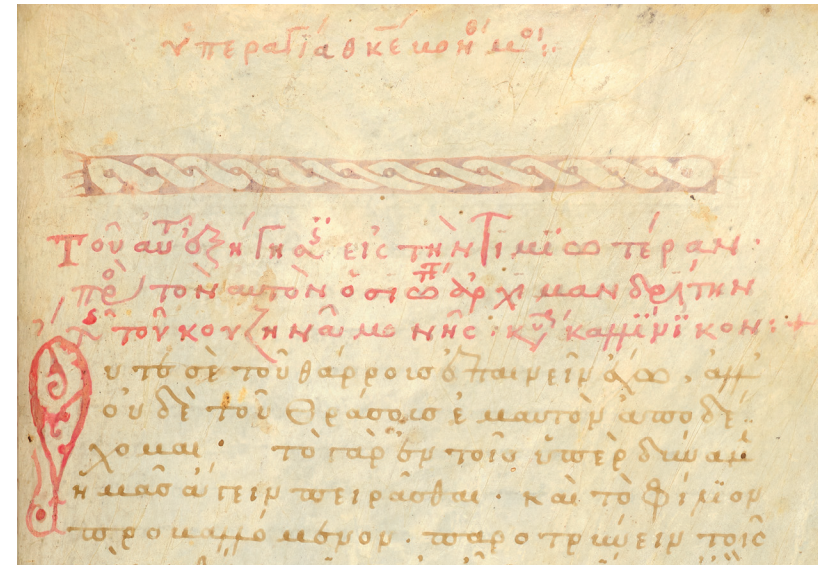 ὑπεραγία θκε βοήθ μοι:
Τοῦ αὐτ ἐξήγησ εἰς τὴν τιμϊωτέραν·
πρὸ τὸν αὐτὸν ὁσιώτ ἀρχιμανδρίτην
τοῦ κουζηνᾶ μονῆς· κυρ
Οὔτε σὲ τοῦ θάρρους ἐπαινεῖν ἔχω, ἀλλ'
οὐδὲ τοῦ θράσους ἐμαυτὸν ἀποδέ
χομαι· τὸ γὰρ ἐν τοῖς ὑπὲρ δύναμ
ἡμᾶς ἄγειν πειρᾶσθαι· καὶ τὸ
προκαλλόμενον· παροτρύνειν τοῖς